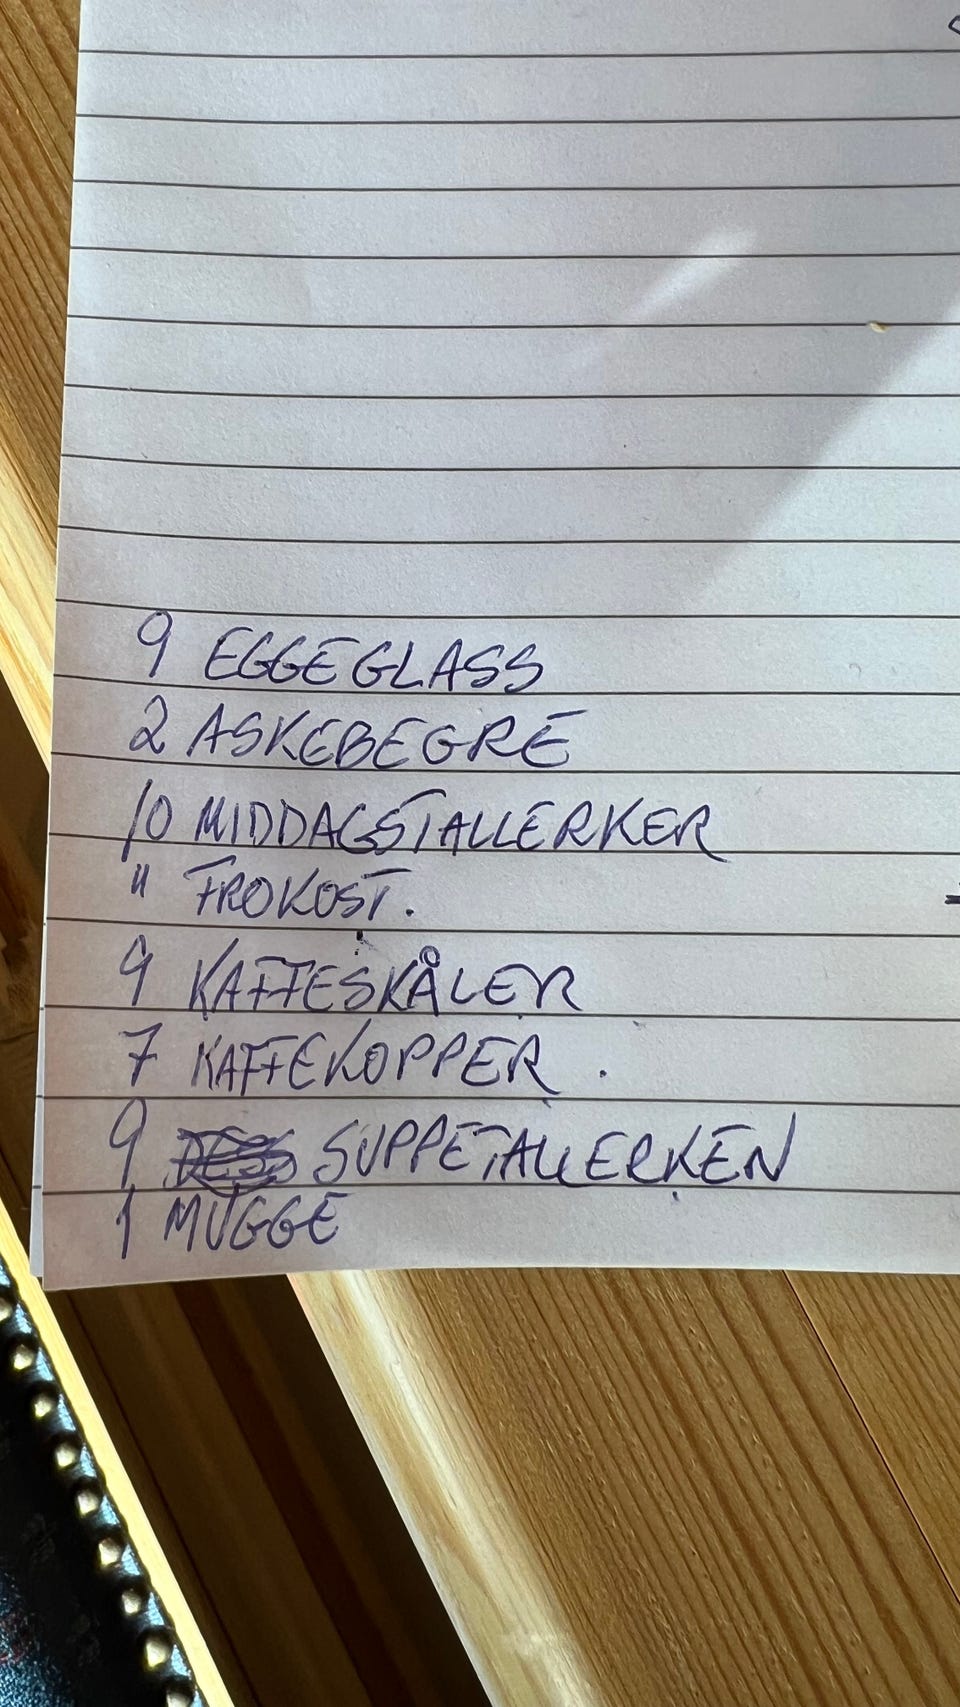 9 EGGEGLASS
2 ASKEBEGRE
10 MIDDAGSTALLERKER
" FROKOST.
9 KAFFESKÅLER
7 KAFFEKOPPER .
9 SUPPETALLERKEN
1 MUGGE